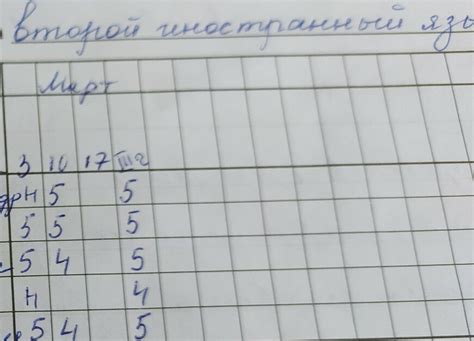 второй иностранный язы
Март
3 10 17 IIIч
Н 5 5
5 5 5
5 4 5
Н 4
5 4 5